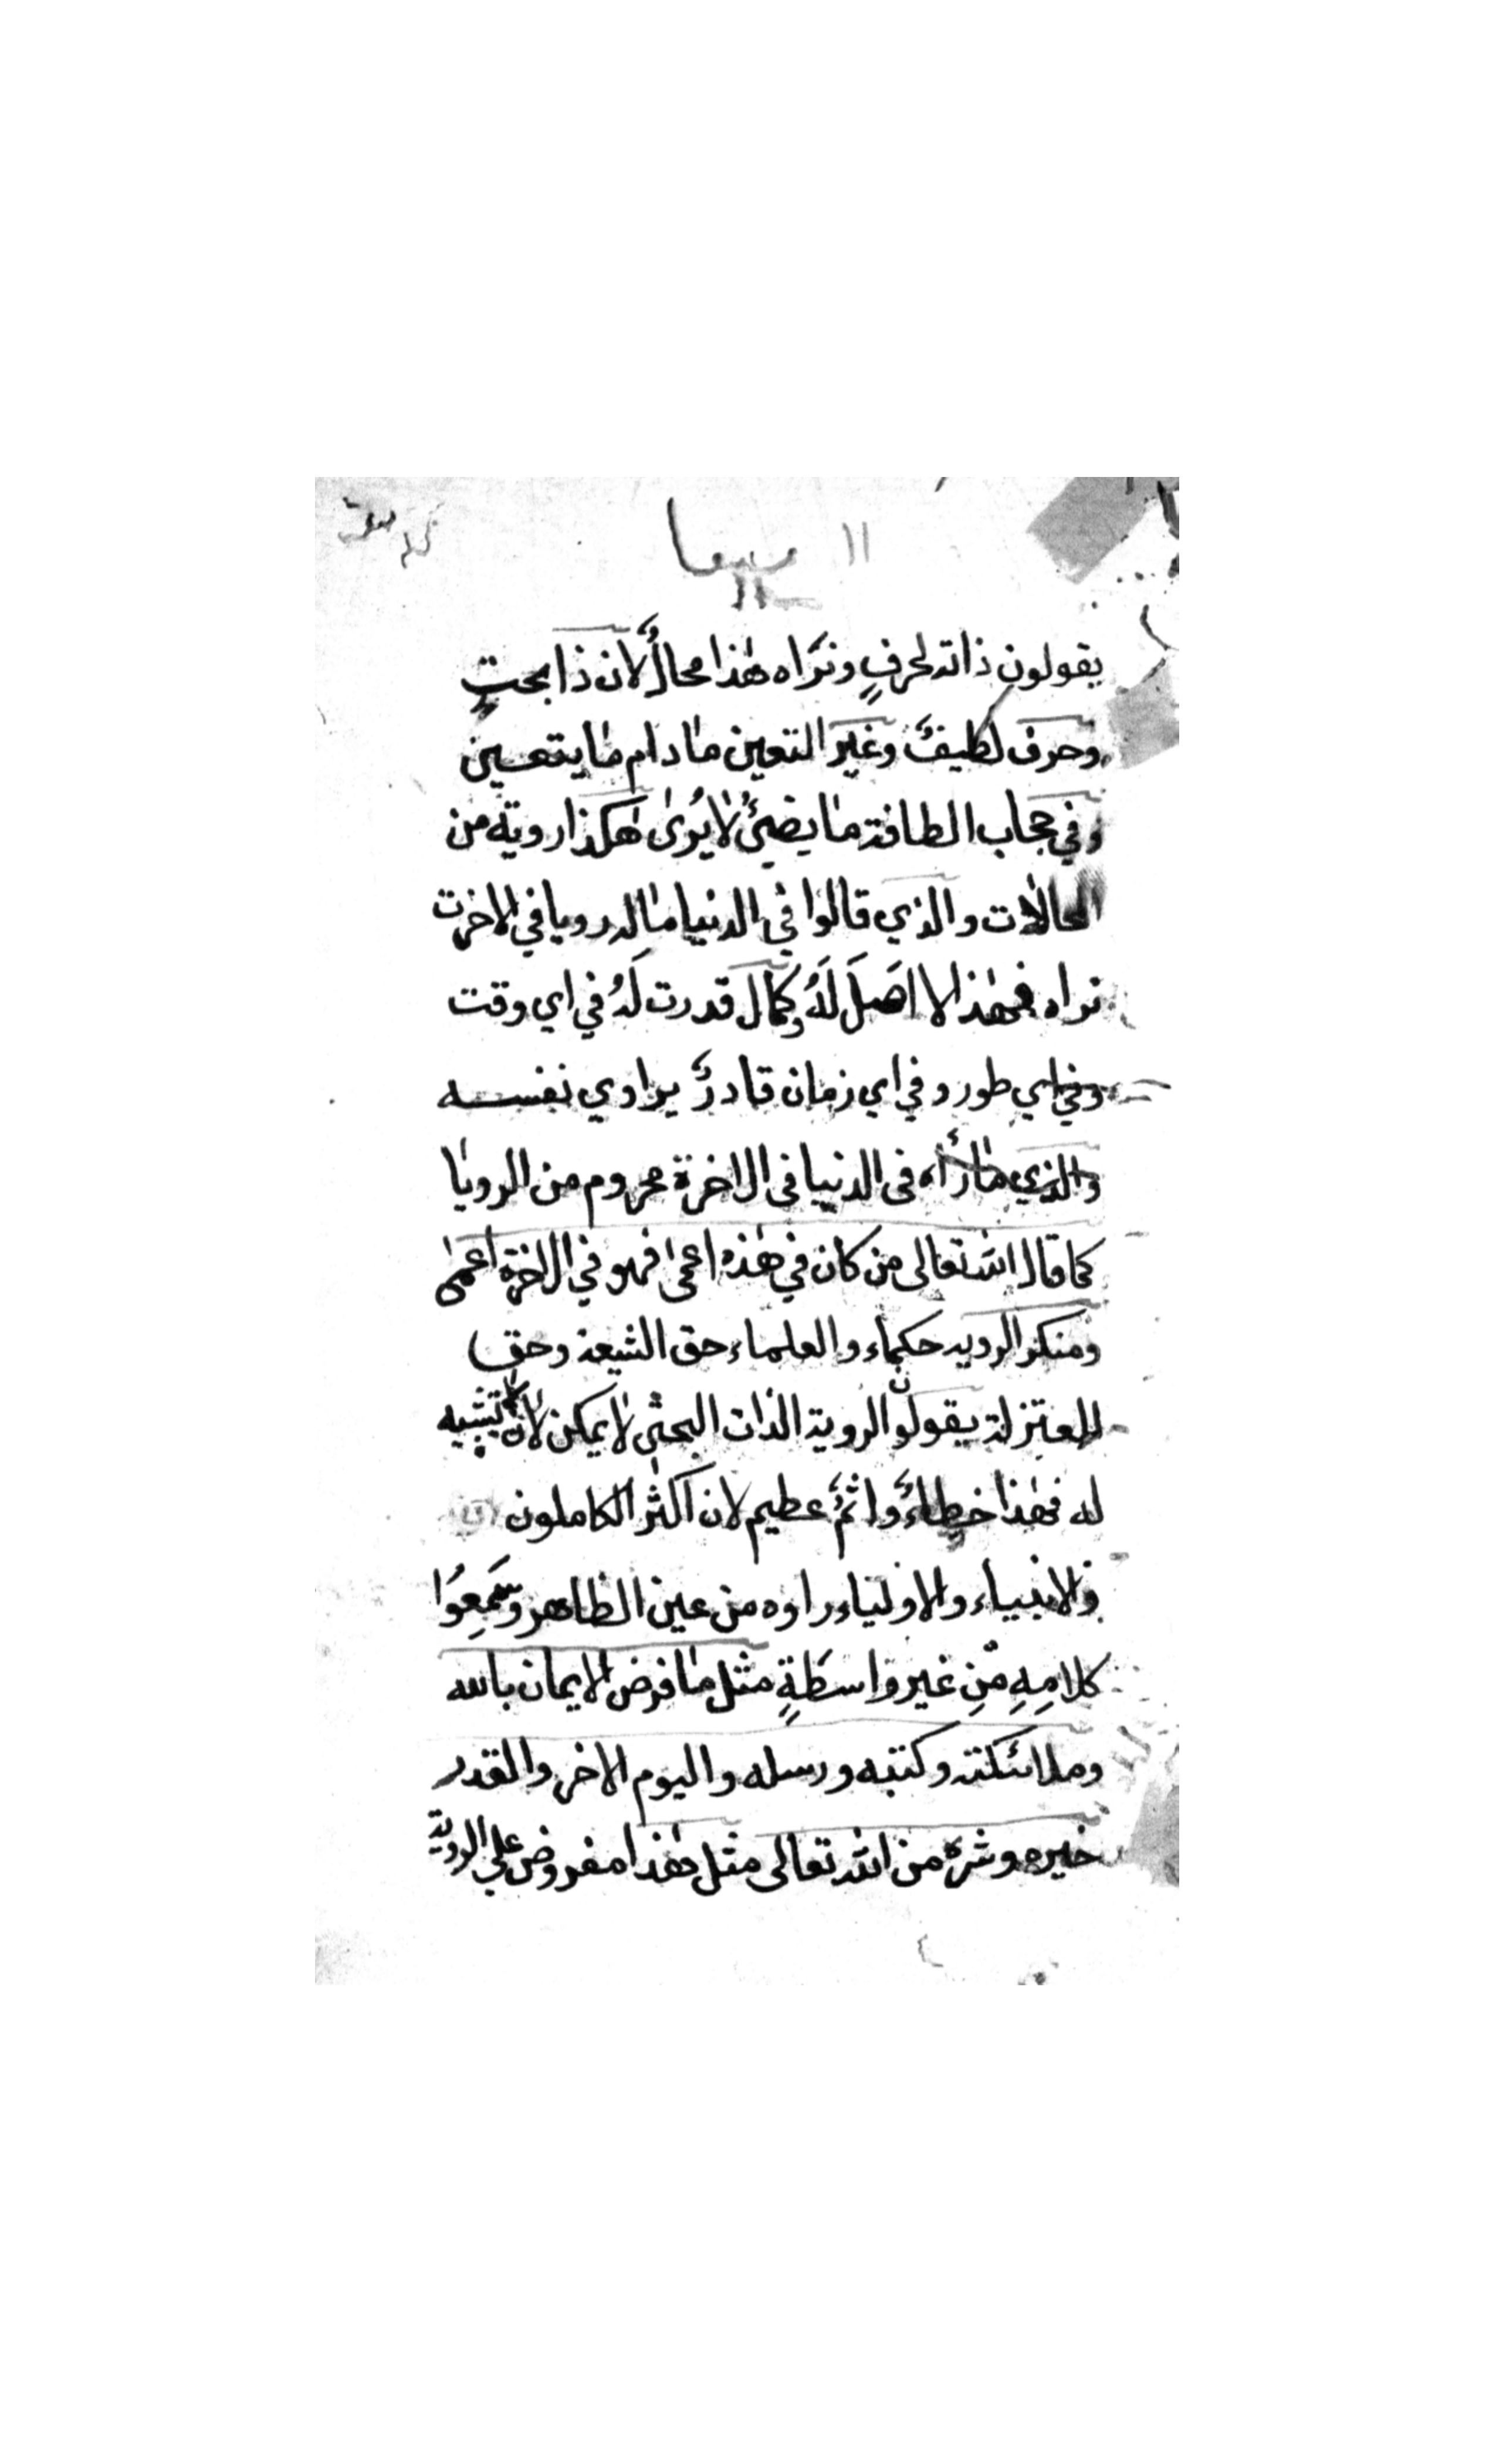 ١١
يقولون ذاته لحرفٍ ونرَاه هٰذا محالٌ لان ذا بحتٍ
وحرف لطيفٌ وغير التعين مٰا دام مٰا يتعين
وفي حجاب الطافة مٰا يضيئُ لٰا يُرىٰ هٰكذا روية من
الحالٰات والذي قالوا في الدنيا مٰاله رويا في الاخرت
نراه فهٰذا لا اصَلَ لَهُ وكمال قدرت لهُ في اي وقت
وفي اي طور وفي اي زمان قادرٌ يراوي نفسه
والذي مٰا رأه في الدنيا في الاخرة محروم من الرويٰا
كما قال الله تعالى من كان في هٰذه اعمىٰ فهو في الاخرة اعمىٰ
ومنكر الرويه حكماء والعلماء حق الشيعة وحق
المعتزلة يقولون الروية الذات البحثي لٰا يمكن لانه لا تشبيه
له فهٰذا خطاءٌ واثمٌ عظيم لان اكثر الكاملون
والانبياء والاولياء راوه من عين الظاهر وسَمِعُوا
كلامِهِ مّنِ غير واسطَةٍ مثل مٰا فرض الايمان بالله
وملائكته وكتبه ورسله واليوم الاخر والقدر
خيره وشره من الله تعالى مثل هٰذا مفروض على الروية